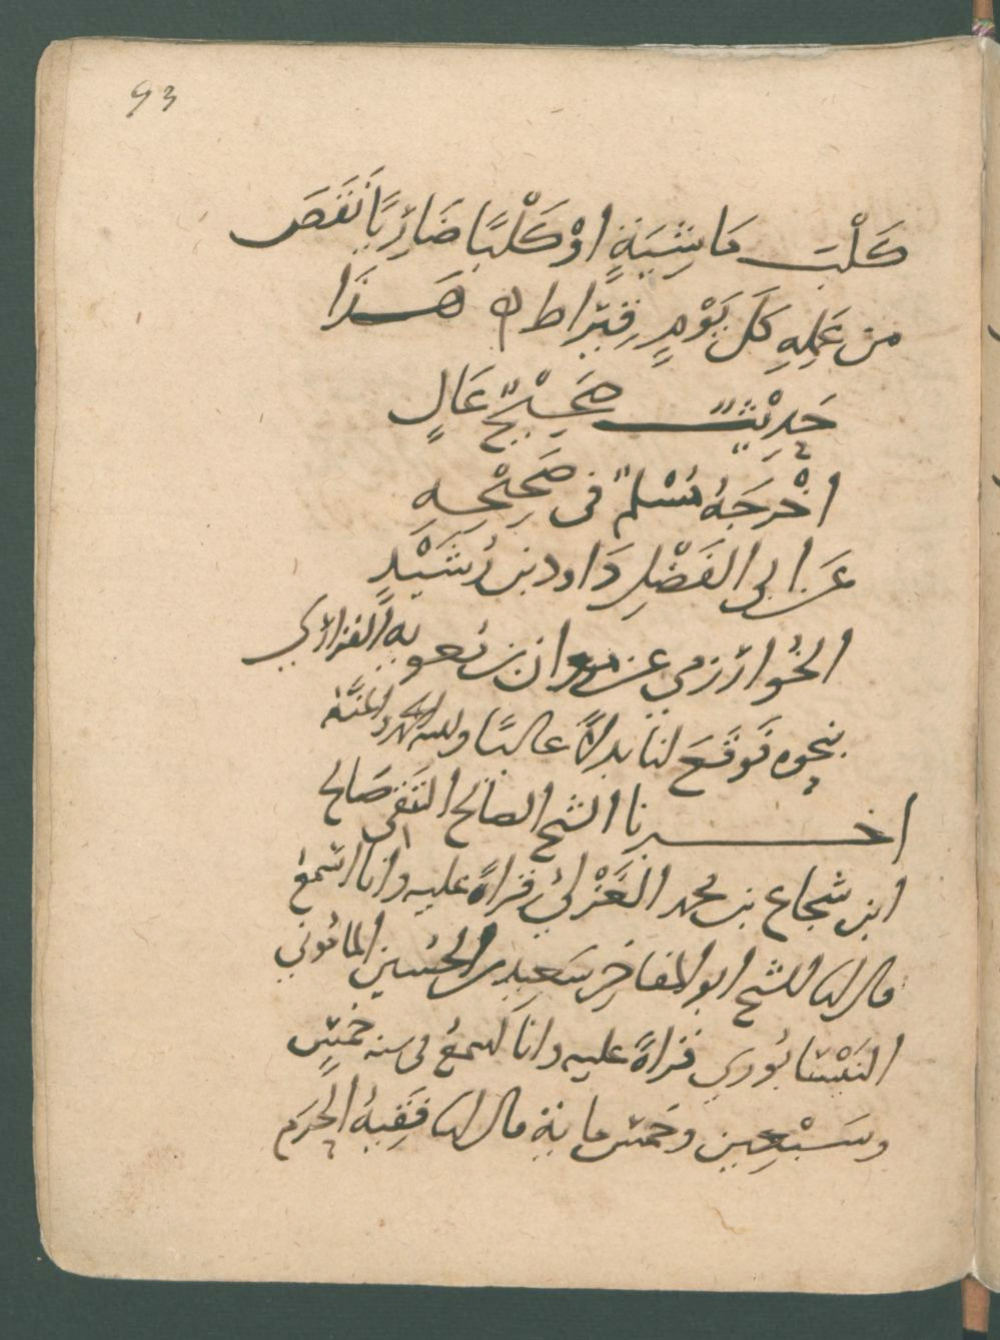 93
كَلْبَ مَاشِيَةٍ اوْ كَلْبًا ضَارِيًا نَقَصَ
من عَمِلِهِ كَلَ يَوْمٍ قِيْرَاط ه هَذَا
حَدِيْثٌ صَحِيْحٌ عَالٍ
اخْرَجَهُ مُسْلمٌ فى صَحِيْحِهِ
عَن ابي الفَضْلِ دَاود بن رُشَيْدٍ
الخُوارَزمي عن مروان بن مُعوية الفزاري
بنحوه فَوقَعَ لنا بدلاً عاليًا ولله الحمد والمنَّة
اخبرنا الشيخ الصالح الثقى صَالح
ابن شجاع بن محمد الغَزْلي قراةً عليه وانا اسمعُ
قال انا الشيخ ابو المفاخرِ سَعِيد بن الحُسين المامُوني
النَيْسَابُوري قراةً عليه وانا اسمعُ في سنه خمسٍ
وسَبْعِين وخمس ماية قال انا فَقِيهُ الحرَم